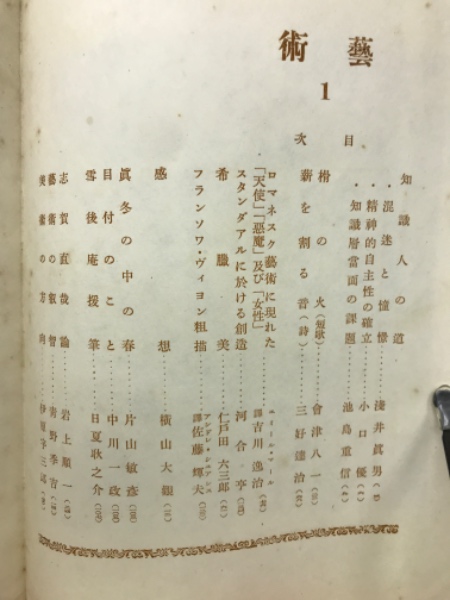 藝術
1
目次
知識人の道
・混迷と憧憬……淺井眞男
・精神的自主性の確立……小口優
・知識層当面の課題……池島重信
榾の火(短歌)……會津八一
薪を割る音(詩)……三好達治
ロマネスク藝術に現れた
「天使」「惡魔」及び「女性」……エミール・マール
譯吉川逸治
スタンダアルに於ける創造……河合亨
希臘美……仁戸田六三郎
フランソワ・ヴィヨン粗描……
譯佐藤輝夫
感想……横山大觀
眞冬の中の春……片山敏彦
目付のこと……中川一政
雪後庵援筆……日夏耿之介
志賀直哉論……岩上順一
藝術の叡智……青野季吉
美術の方向……伊原宇三郎